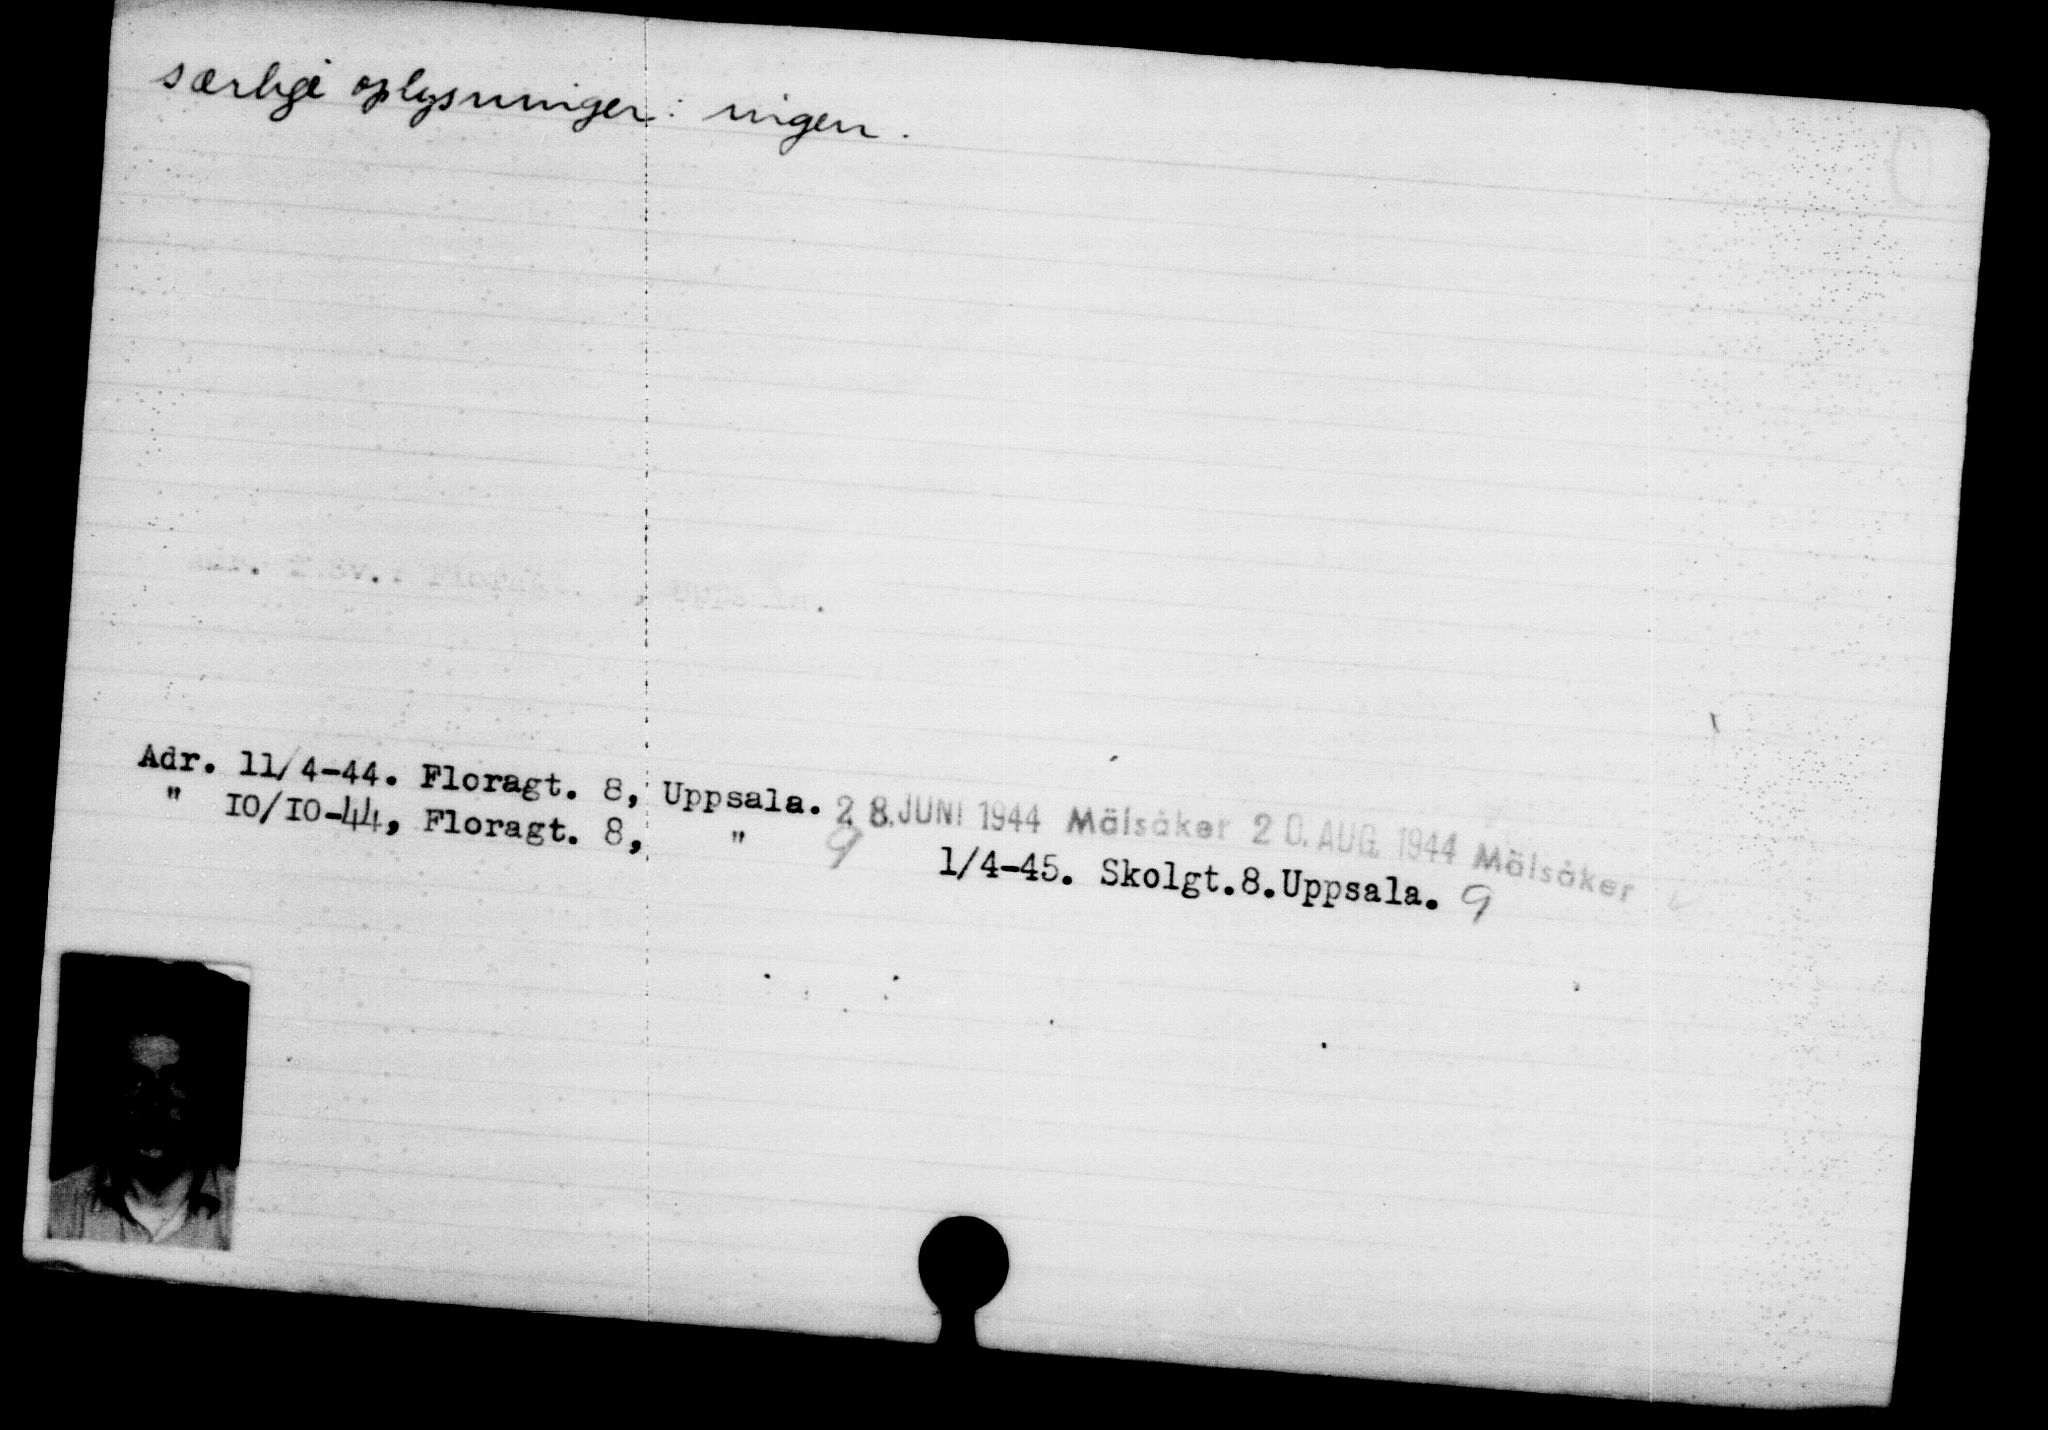 særlige oplysninger: ingen.
Adr. i Sv.: Floragt. , Uppsala.
Adr. 11/4-44. Floragt. 8, Uppsala. 28. JUNI 1944 Mälsåker 20. AUG. 1944 Mälsåker
" 10/10-44, Floragt. 8, " 9 1/4-45. Skolgt.8.Uppsala. 9